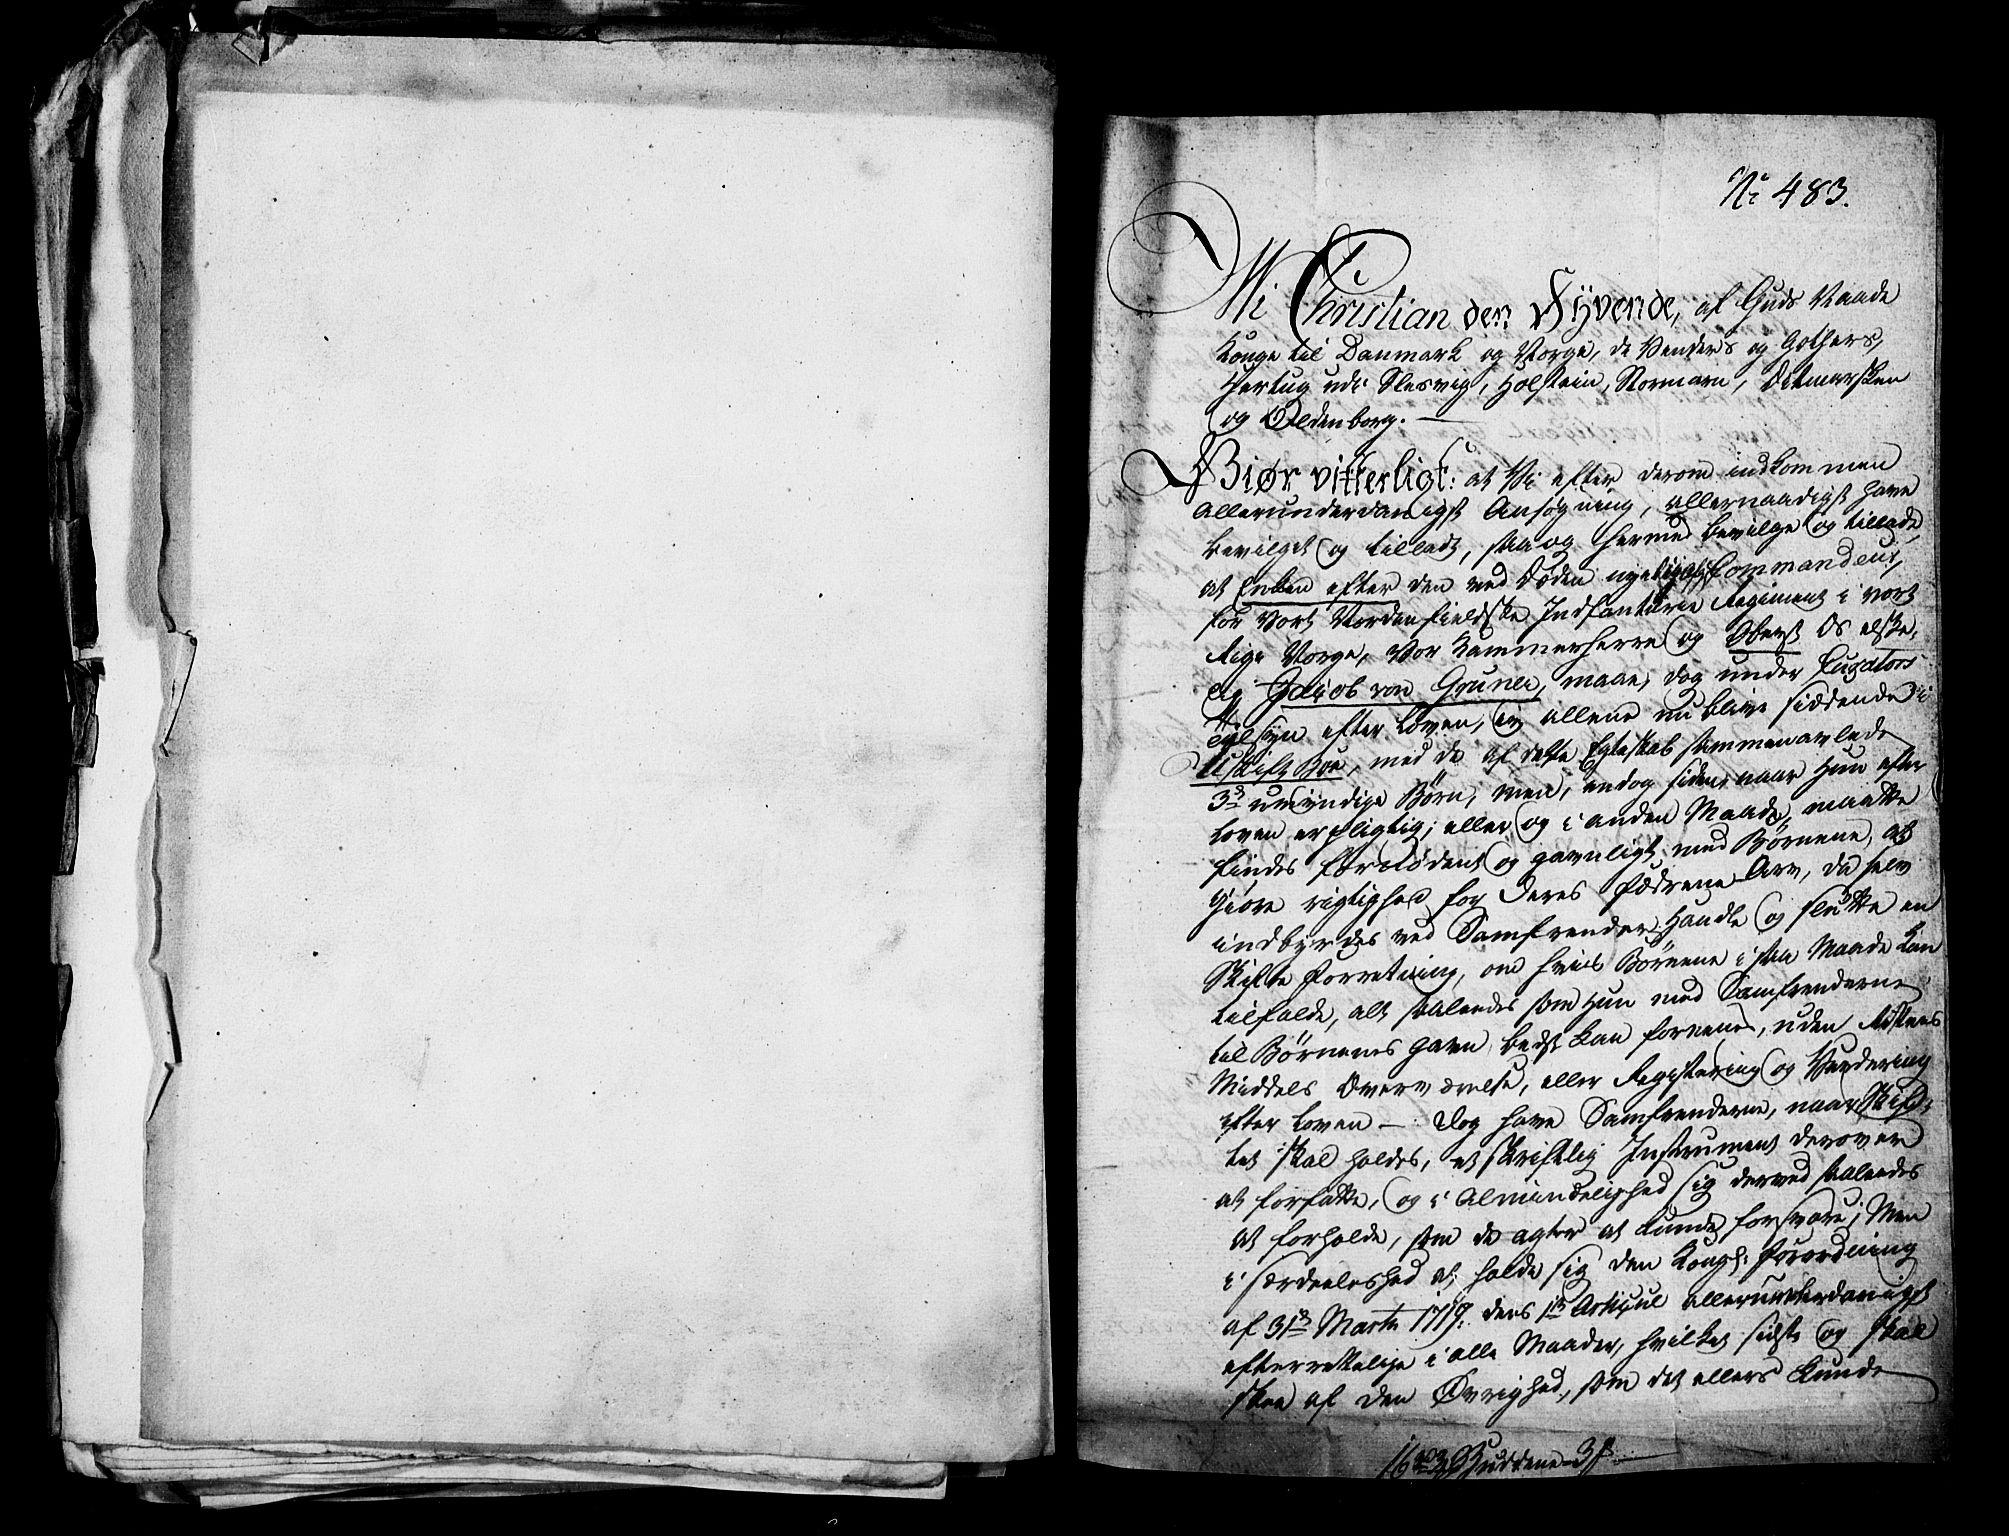 No 483.
Wi Christian den Syvende, af Guds Naade
Konge til Danmark og Norge, de Venders og Gothers,
Hertug udi Slesvig, Holstein, Stormarn, Ditmarsken
og Oldenborg. —
Giør vitterligt: at Vi efter derom indkommen
allerunderdanigst Ansøgning, allernaadigst have
bevilget og tilladt, saa og hermed bevilge og tillade,
at Enken efter den ved Døden Commandeur,
for Vort Nordenfieldske Infanterie Regiment i vort
Rige Norge, Vor Kammerherre og Oberst Os elske-
lig Jacob von Gruner, maae, dog under Curators
Tilsyn efter Loven, blive siddende i
Uskift Boe, med de af dette Egteskab sammenavlede
3de umyndige Børn; men, endog siden, naar Hun efter
Loven er pligtig, eller og i anden Maade, maatte
findes fornødent og gavnligt med Børnene, at
Giøre rigtighed for deres Fædrene Arv, da selv
indbyrdes ved Samfrender Handle og slutte en
Skifte Forretning, om hvis Børnene i saa Maade kan
tilfalde, alt saaledes som Hun med Samfrenderne
til Børnenes gavn best kan forenes, uden Skifte
Middels Overværelse, eller Registering og Vurdering
efter Loven — Dog have Samfrenderne, naar Skif-
tet skal holdes, et skriftlig Instrument derover
at forfatte, og i Almindelighed sig derved saaledes
at forholde, som de agter at kunde forsvare; Men
i særdeleshed at holde sig den Kongl: Forordning
af 31te Martii 1719. dens 1te Articul allerunderdanigst
efterrettelige i alle Maader, hvilket sidste og skal
skee af den Øvrighed, som det ellers kunde